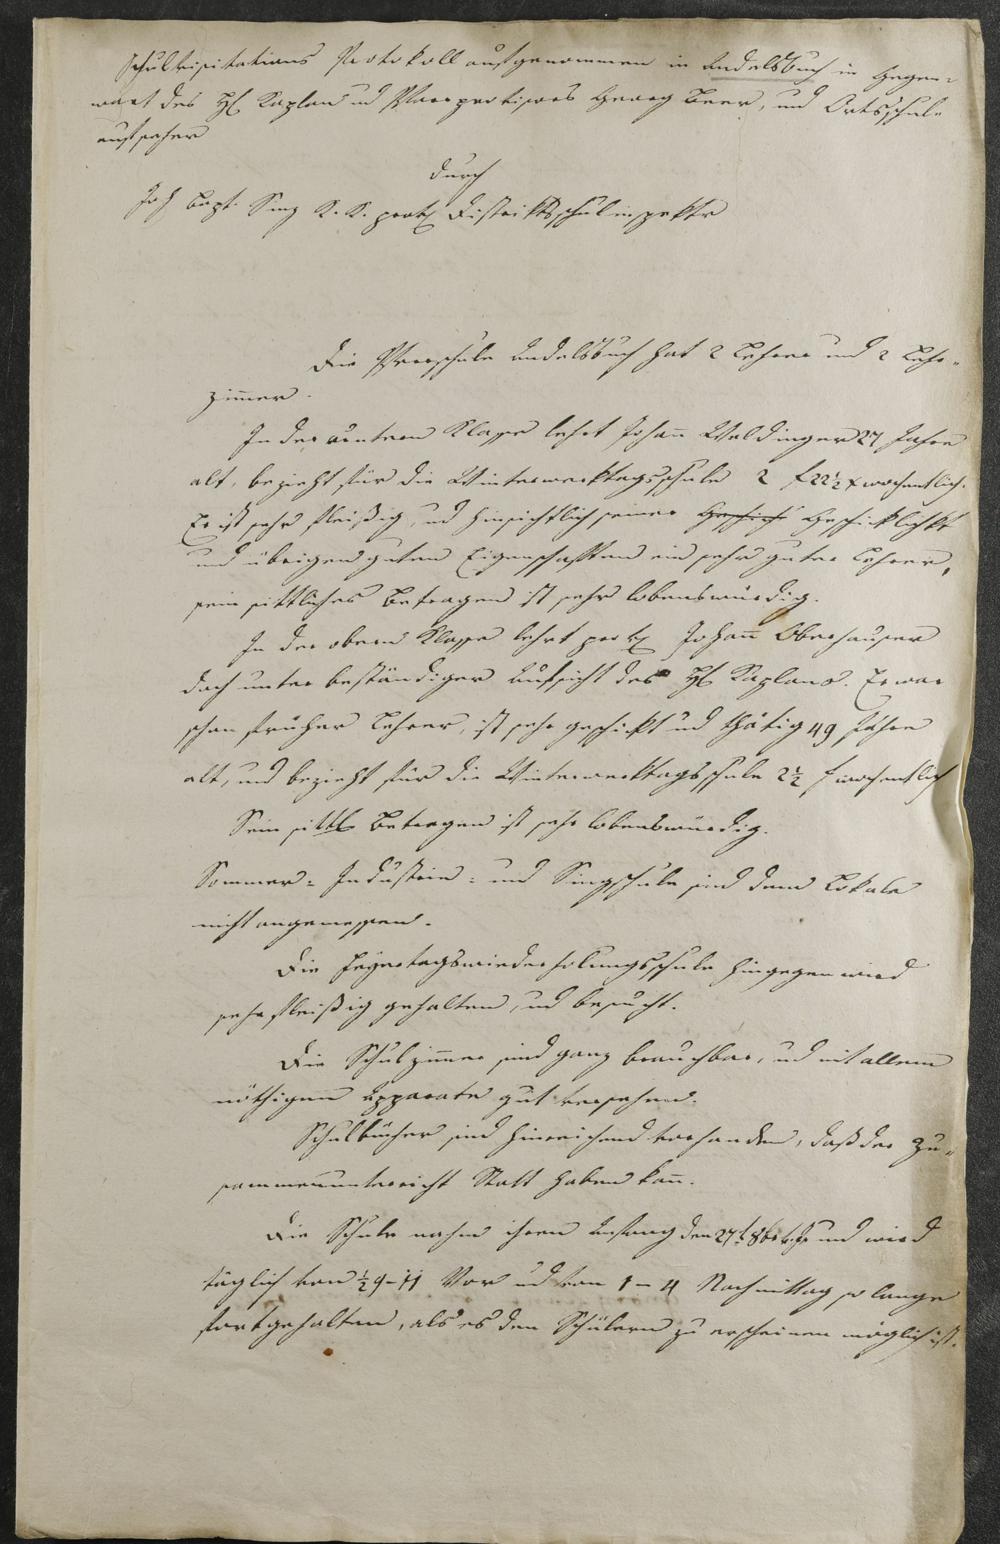 Schulvisitations Protokoll aufgenommen in Andelsbuch in Gegen=
wart des H Kaplan und Pfarrprovisors Georg Beer, und Ortsschul=
aufseher
durch
Joh Bapt. Sinz K. K. prov Distriktsschulinspektr
Die Pfarrschule Andelsbuch hat 2 Lehrer und 2 Lehr=
zimmer.
In der untern Klasse lehrt Johann Waldinger 27 Jahre
alt, bezieht für die Winterwerktagsschule 2 f 22½ x wochentlich.
Er ist sehr fleißig, und hinsichtlich seiner Geschickt Geschicklichkt
und übrigen guten Eigenschaften ein sehr guter Lehrer,
sein sittliches Betragen ist sehr lobenswürdig.
In der obern Klasse lehrt prov Johann Oberhauser
doch unter beständiger Aufsicht des H Kaplans. Er war
schon früher Lehrer, ist sehr geschickt und thätig 49 Jahre
alt, und bezieht für die Winterwerktagsschule 2½ f wochentlich
Sein sittl Betragen ist sehr lobenswürdig.
Sommer= Industrie= und Singschule sind dem Lokale
nicht angemessen.
Die Feyertagswiederholungsschule hingegen wird
sehr fleißig gehalten, und besucht.
Die Schulzimmer sind ganz brauchbar, und mit allem
nöthigem Apparate gut versehend.
Schulbücher sind hinreichend vorhanden, daß der Zu=
sammenunterricht Statt haben kann.
Die Schule nahm ihren Anfang den 27t 8br und wird
täglich von ½9-11 Vor und von 1-4 Nachmittag so lange
fortgehalten, als es den Schülern zu erscheinen möglich ist.